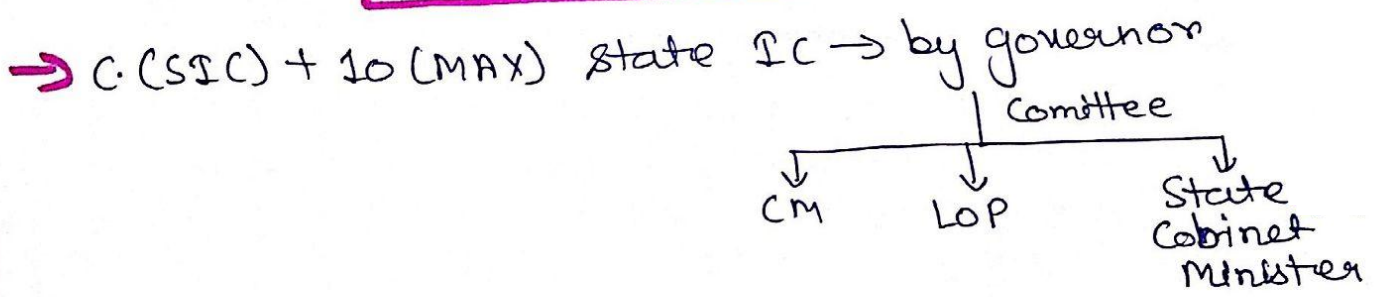 → C. (SIC) + 10 (MAX) State IC → by governor
Comittee
CM LOP State
Cobinet
Minister